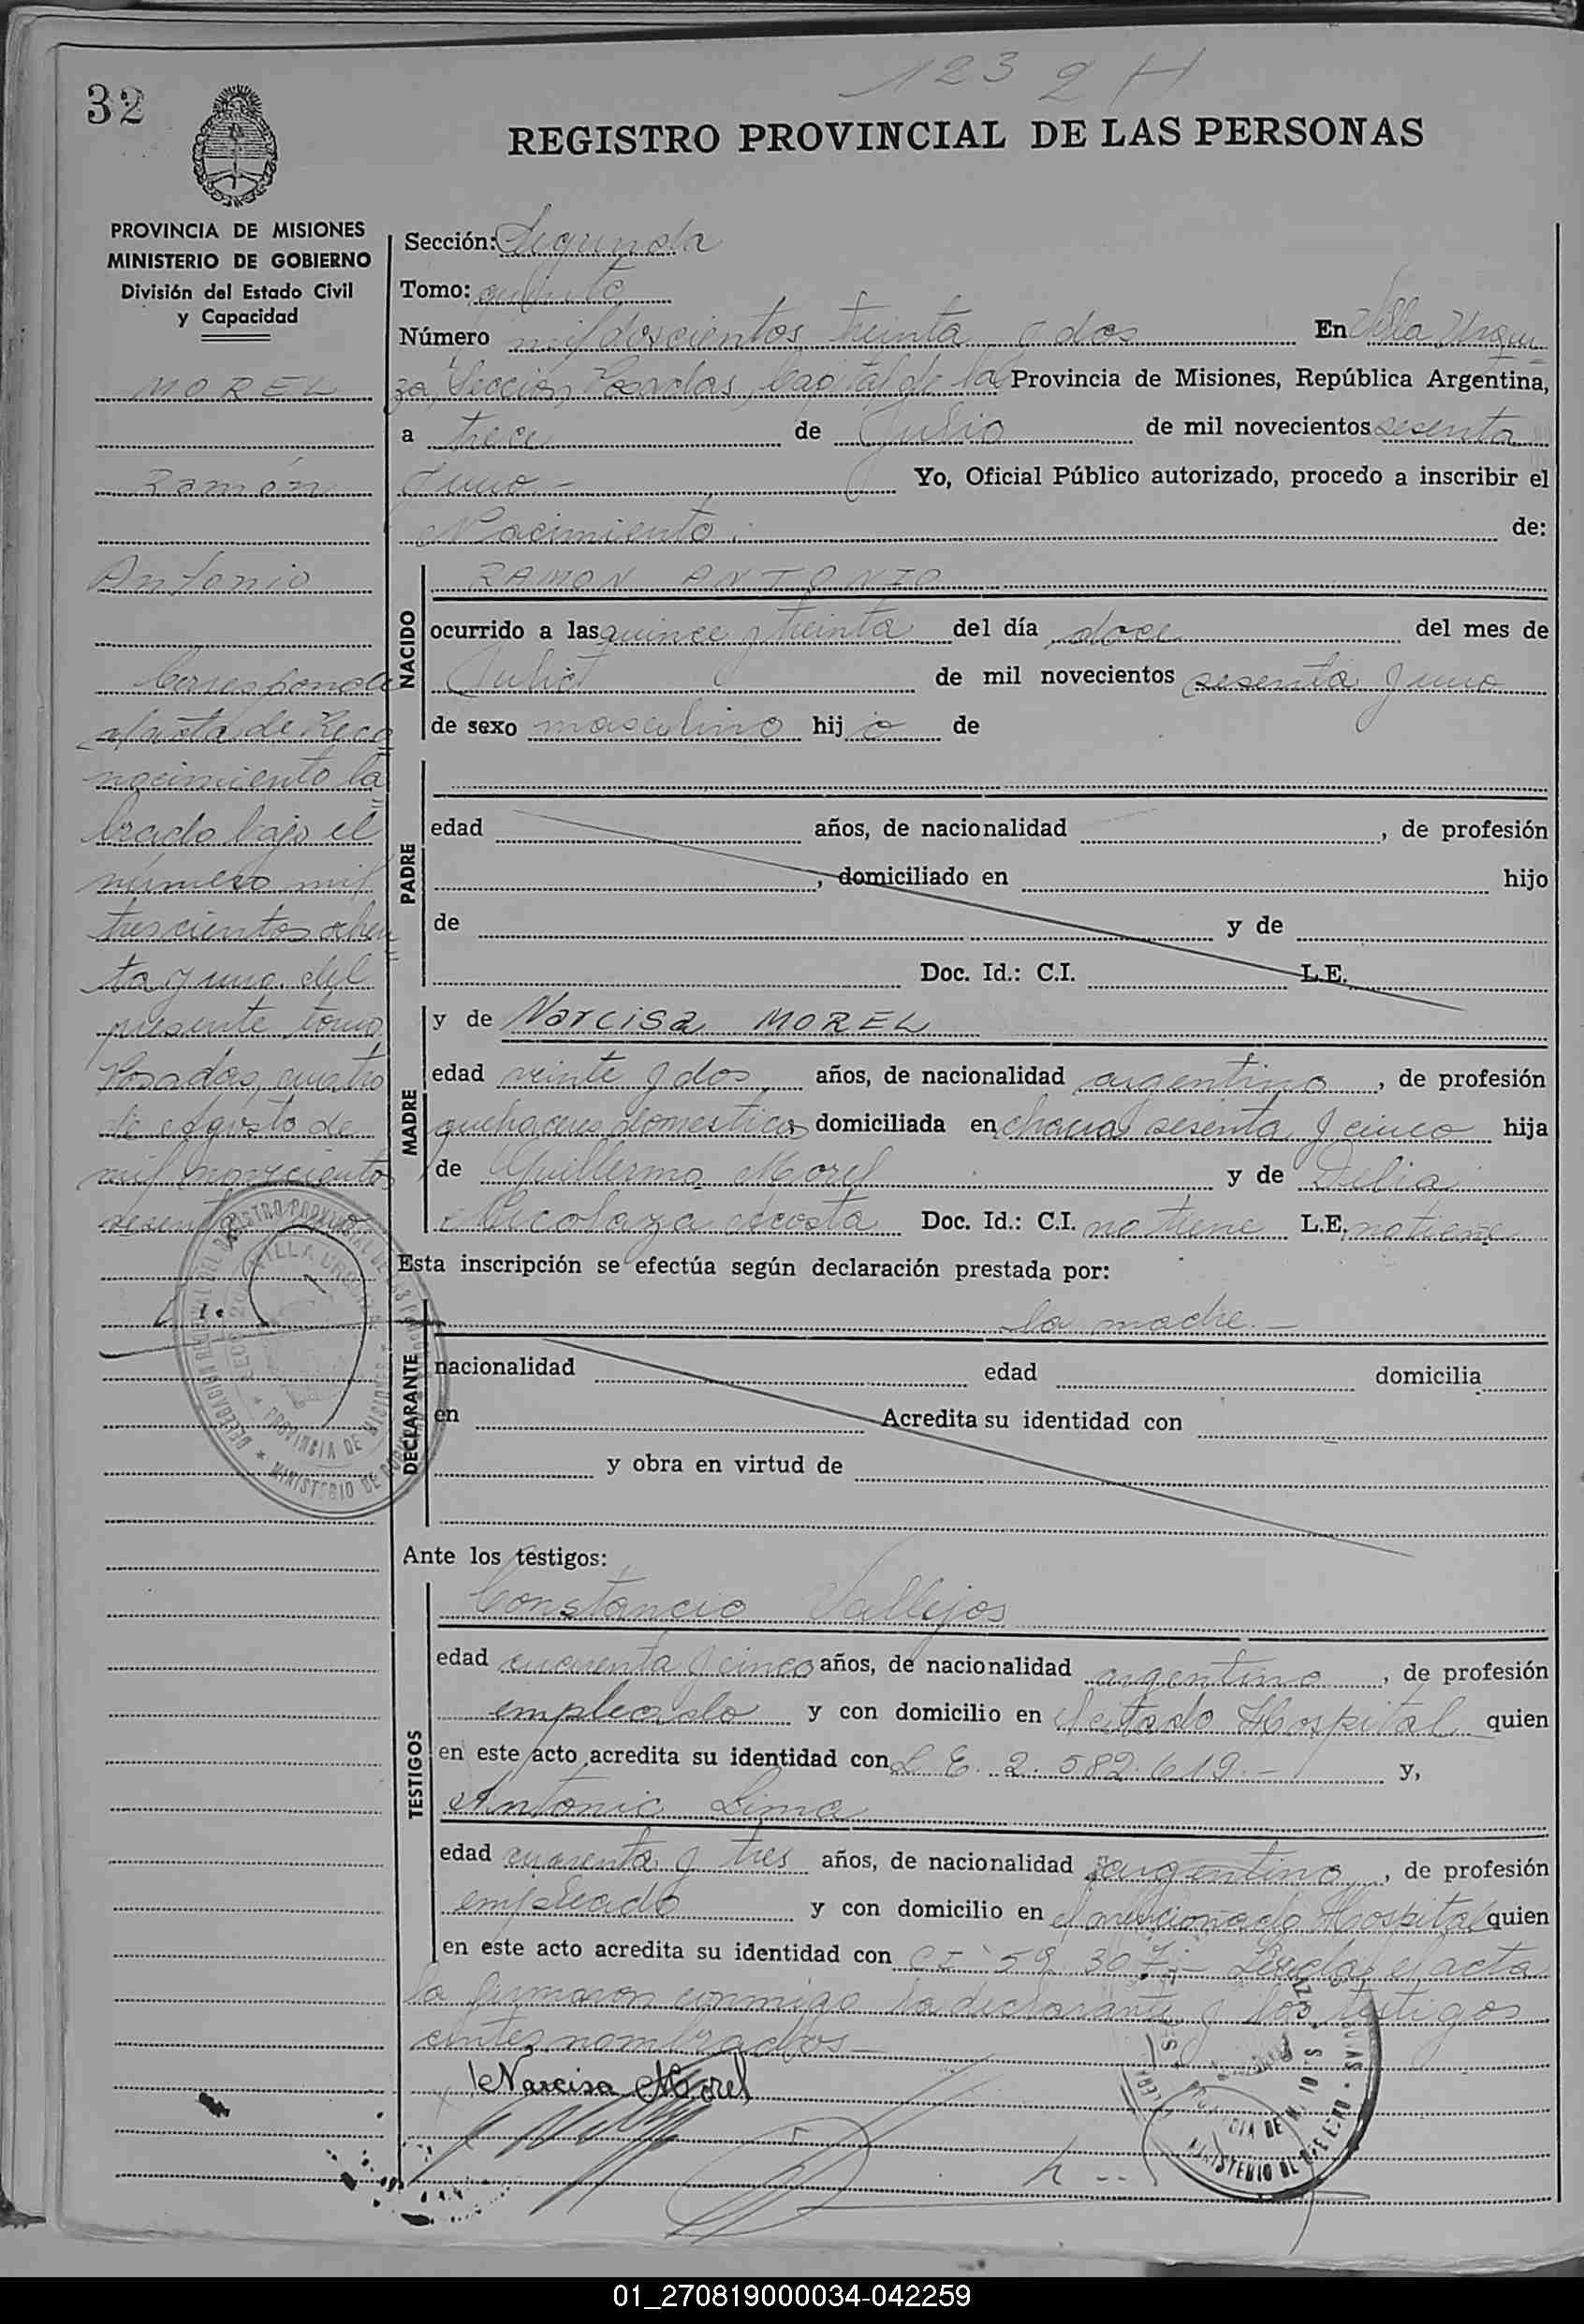 1232 H
32
REGISTRO PROVINCIAL DE LAS PERSONAS
PROVINCIA DE MISIONES
MINISTERIO DE GOBIERNO
División del Estado Civil
y Capacidad
MOREL
Ramón
Antonio
Corresponde
al acta de Reco
nocimiento la
brado bajo el
número mil
trescientos ochen
ta y uno del
presente tomo
Posadas, cuatro
de Agosto de
mil novecientos
sesenta
Sección: Segunda
Tomo: quinto
Número mil doscientos treinta y dos En Villa Urqui
za, Sección Posadas, Capital de la Provincia de Misiones, República Argentina,
a trece de Julio de mil novecientos sesenta
y uno.- Yo, Oficial Público autorizado, procedo a inscribir el
Nacimiento de:
NACIDO
RAMON ANTONIO
ocurrido a las quince y treinta del día doce del mes de
Julio de mil novecientos sesenta y uno
de sexo masculino hij o de
PADRE
edad años, de nacionalidad , de profesión
, domiciliado en hijo
de y de
Doc. Id.: C.I. L.E.
MADRE
y de Narcisa MOREL
edad veinte y dos años, de nacionalidad argentina, de profesión
quehaceres domesticos domiciliada en chacra sesenta y cinco hija
de Guillermo Morel y de Delia
Nicolaza Acosta Doc. Id.: C.I. no tiene L.E. no tiene
Esta inscripción se efectúa según declaración prestada por:
la madre.-
DECLARANTE
nacionalidad edad domicilia
en Acredita su identidad con
y obra en virtud de
Ante los testigos:
TESTIGOS
Constancio Vallejos
edad cuarenta y cinco años, de nacionalidad argentino, de profesión
empleado y con domicilio en el citado Hospital quien
en este acto acredita su identidad con L E. 2.582.619.- y,
Antonio Lima
edad cuarenta y tres años, de nacionalidad argentino, de profesión
empleado y con domicilio en el mencionado Hospital quien
en este acto acredita su identidad con CI 59 307.- Leida el acta
la firmaron conmigo la declarante y los testigos
antes nombrados-
Narcisa Morel
01_270819000034-042259